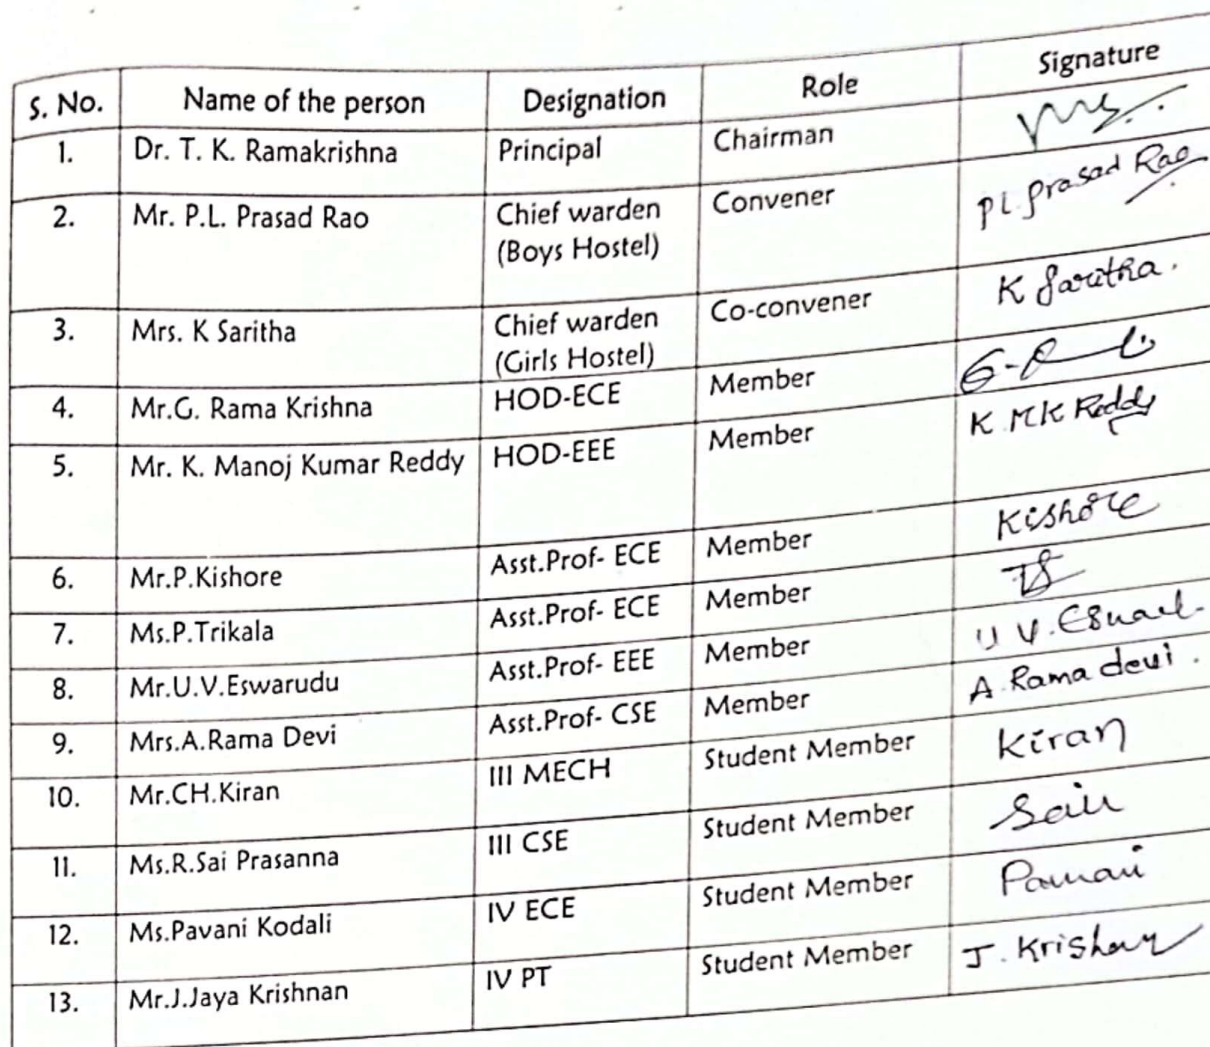 S. No. Name of the person Designation Role Signature
1. Dr. T. K. Ramakrishna Principal Chairman
2. Mr. P.L. Prasad Rao Chief warden Convener P L Prasad Rao
(Boys Hostel)
3. Mrs. K Saritha Chief warden Co-convener K Saritha.
(Girls Hostel)
4. Mr.G. Rama Krishna HOD-ECE Member
5. Mr. K. Manoj Kumar Reddy HOD-EEE Member K MK Reddy
6. Mr.P.Kishore Asst.Prof- ECE Member Kishore
7. Ms.P.Trikala Asst.Prof- ECE Member
8. Mr.U.V.Eswarudu Asst.Prof- EEE Member U V.
9. Mrs.A.Rama Devi Asst.Prof- CSE Member A Rama devi.
10. Mr.CH.Kiran III MECH Student Member Kiran
11. Ms.R.Sai Prasanna III CSE Student Member Sai
12. Ms.Pavani Kodali IV ECE Student Member Pavani
13. Mr.J.Jaya Krishnan IV PT Student Member J.